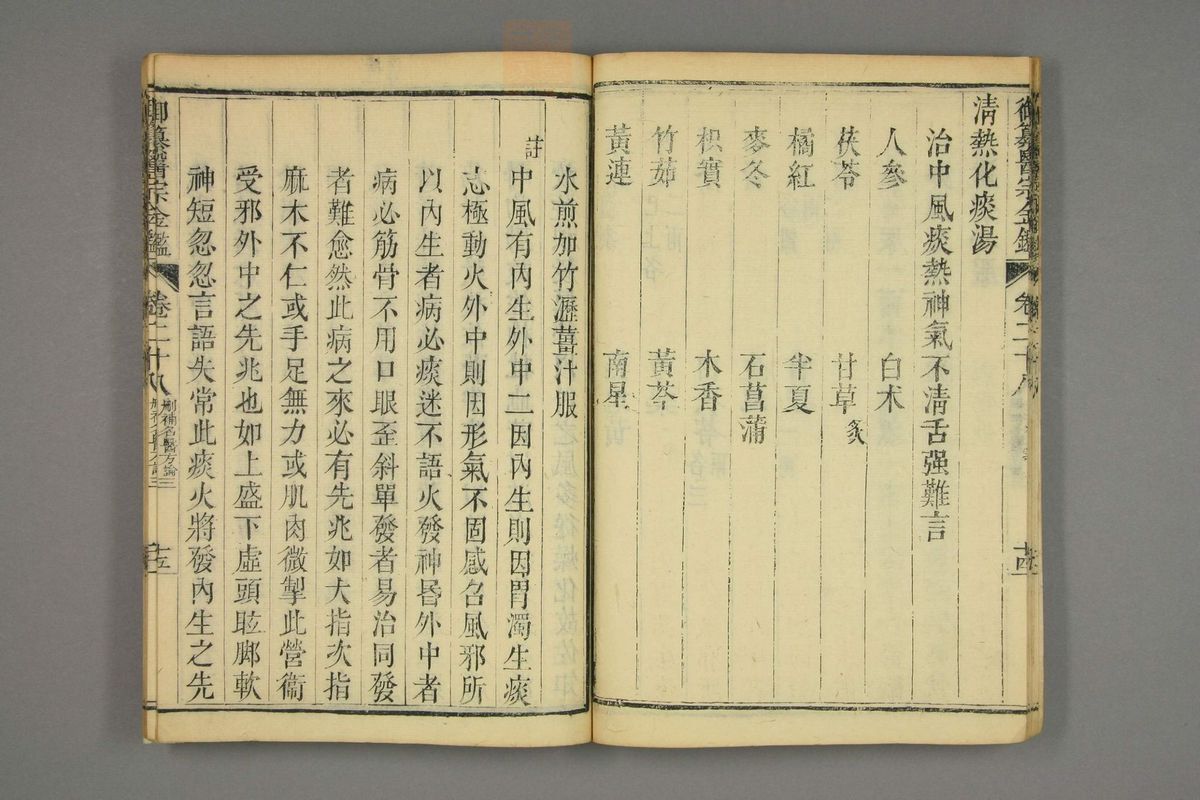 清熱化痰湯
治中風痰熱神氣不清舌强難言
人參 白术
茯苓 甘草炙
橘紅 半夏
麥冬 石菖蒲
枳實 木香
竹茹 黃芩
黃連 南星
御纂醫宗金鑑 卷二十八 十四
水煎加竹瀝薑汁服
註
中風有內生外中二因內生則因胃濁生痰
志極動火外中則因形氣不固感召風邪所
以內生者病必痰迷不語火發神昏外中者
病必筋骨不用口眼歪斜單發者易治同發
者難愈然此病之來必有先兆如大指次指
麻木不仁或手足無力或肌肉微掣此營衞
受邪外中之先兆也如上盛下虛頭眩脚軟
神短忽忽言語失常此痰火將發內生之先
御纂醫宗金鑑 卷二十八 刪補名醫方論三 十五